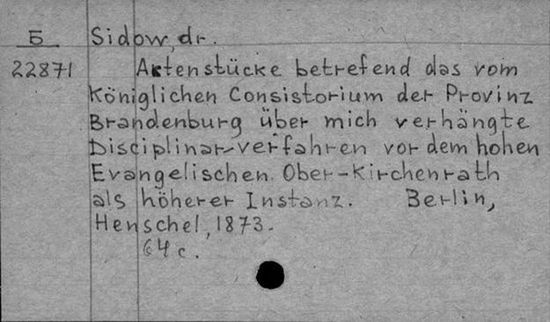 Б Sidow, dr.
22871 Aktenstücke betrefend das vom
Königlichen Consistorium der Provinz
Brandenburg über mich verhängte
Disciplinar-verfahren vor dem hohen
Evangelischen Ober-Kirchenrath
als höherer Instanz. Berlin,
Henschel, 1873.
64 c.